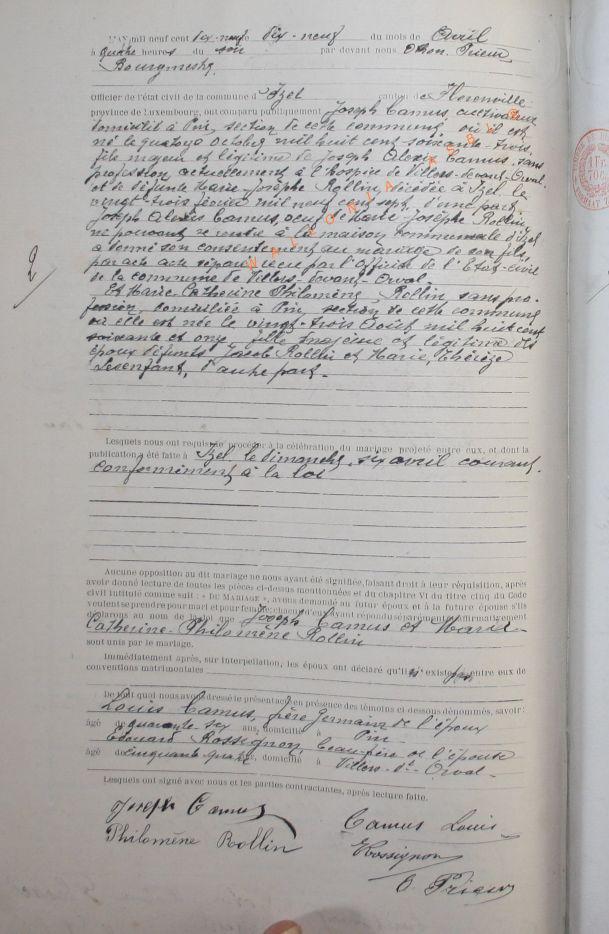 L'AN mil neuf cent dix-neuf le dix-neuf du mois de Avril
à quatre heures du soir par devant nous Odon Prieur
Bourgmestre
Officier de l'état civil de la commune d'Izel canton de Florenville
province de Luxembourg, ont comparu publiquement Joseph Camus, cultivateur
domicilié à Pin, section de cette commune, où il est
né le quatorze octobre mil huit cent soixante-trois,
fils majeur et légitime de Joseph Alexis Camus, sans
profession, actuellement à l'hospice de Villers-devant-Orval,
et de défunte Marie-Josèphe Rollin, décédée à Izel le
vingt-trois février mil neuf cent sept, d'une part.
Joseph Alexis Camus, veuf de Marie Josèphe Rollin,
ne pouvant se rendre à la maison communale d'Izel
a donné son consentement au mariage de son fils,
par acte reçu par l'Officier de l'Etat-civil
de la commune de Villers-devant-Orval
Et Marie-Catherine Philomène Rollin, sans pro-
fession, domiciliée à Pin, section de cette commune
où elle est née le vingt-trois Août mil huit cent
soixante et onze, fille majeure et légitime des
époux défunts Jacob Rollin et Marie, Thérèze
Lesenfant, d'autre part.
2
WALLONIA
Lesquels nous ont requis de procéder à la célébration du mariage projeté entre eux, et dont la
publication a été faite à Izel le dimanche, six avril courant,
conformément à la loi
Aucune opposition au dit mariage ne nous ayant été signifiée, faisant droit à leur réquisition, après
avoir donné lecture de toutes les pièces ci-dessus mentionnées et du chapitre VI du titre cinq du Code
civil intitulé comme suit : « DU MARIAGE », avons demandé au futur époux et à la future épouse s'ils
veulent se prendre pour mari et pour femme; chacun d'eux ayant répondu séparément et affirmativement
déclarons au nom de la loi que Joseph Camus et Marie
Catherine-Philomène Rollin
sont unis par le mariage.
Immédiatement après, sur interpellation, les époux ont déclaré qu'il n' existe pas entre eux de
conventions matrimoniales
De tout quoi nous avons dressé le présent acte en présence des témoins ci-dessous dénommés, savoir :
Louis Camus, frère germain de l'époux
âgé de quarante six ans, domicilié à Pin
Edouard Rossignon, beau-frère de l'épouse
âgé de cinquante quatre, domicilié à Villers-dt-Orval
Lesquels ont signé avec nous et les parties contractantes, après lecture faite.
Joseph Camus
Camus Louis
Philomène Rollin
Rossignon
O. Prieur